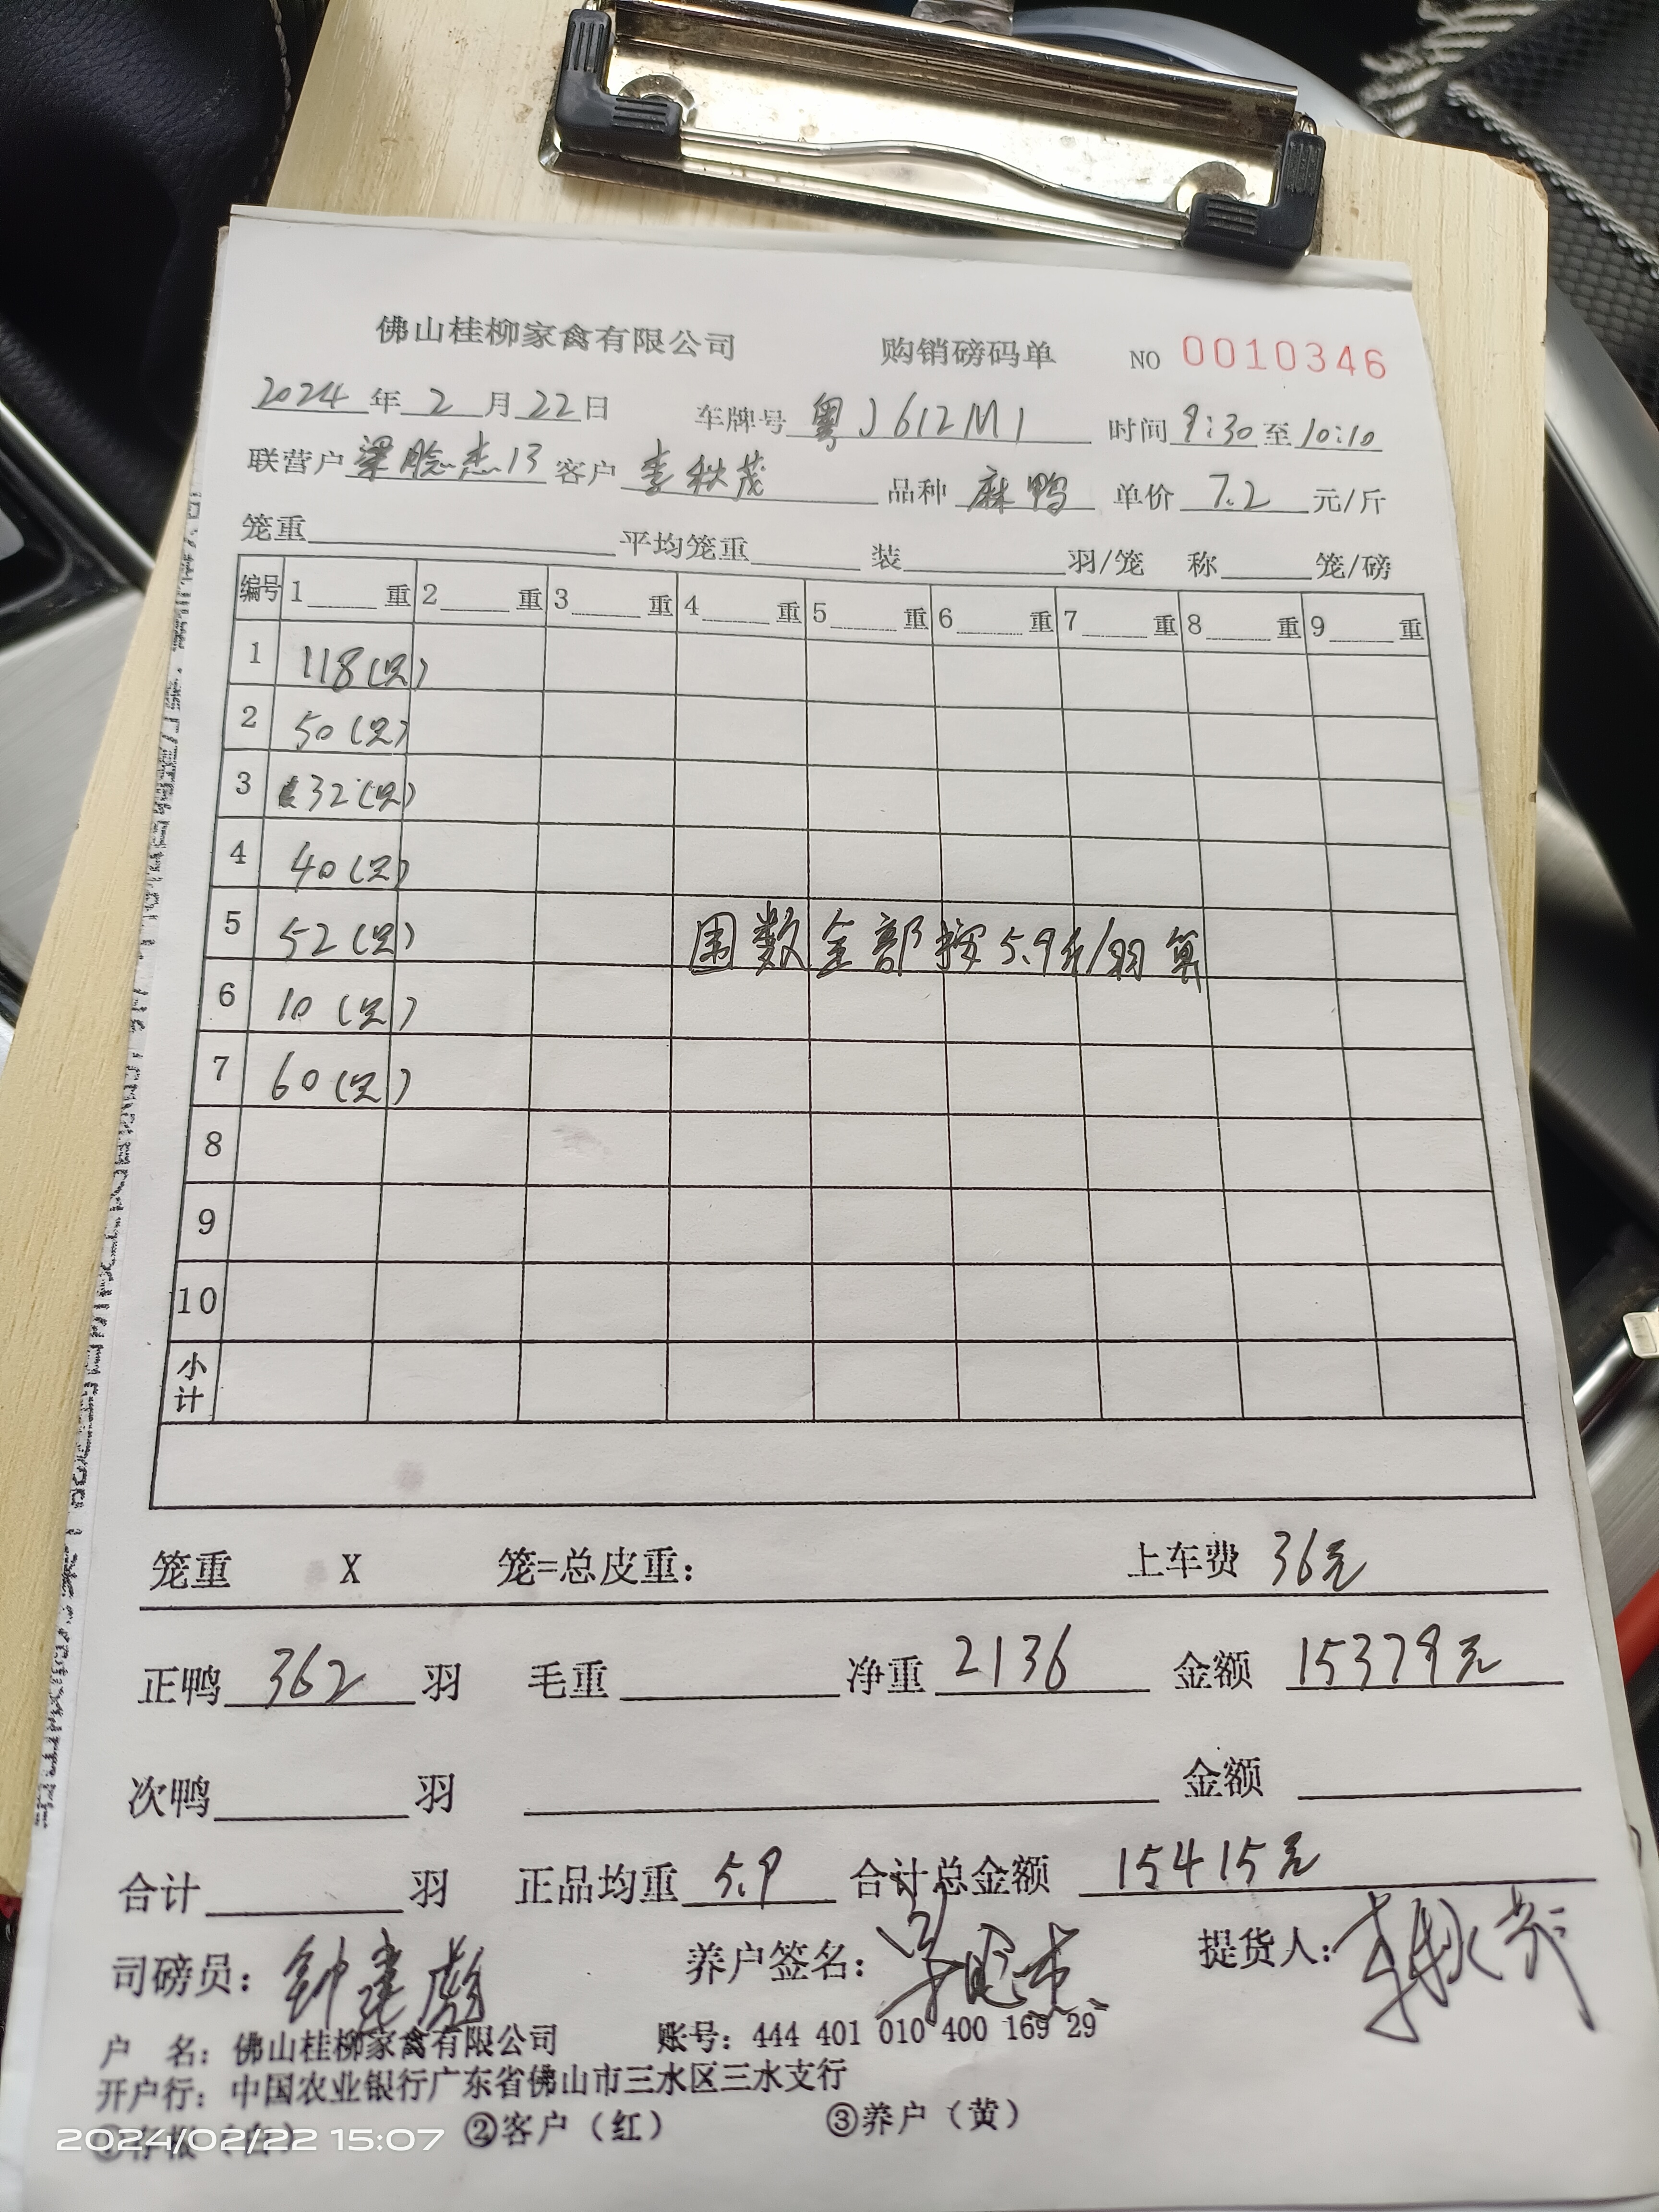 佛山桂柳家禽有限公司 购销磅码单 NO 0010346
2024年2月22日 车牌号粤J612M1 时间9:30至10:10
联营户梁脍杰13 客户李秋茂 品种麻鸭 单价7.2元/斤
笼重 平均笼重 装 羽/笼 称 笼/磅
编号 1 重 2 重 3 重 4 重 5 重 6 重 7 重 8 重 9 重
1 118(只)
2 50(只)
3 32(只)
4 40(只)
5 52(只) 围数全部按5.9斤/羽算
6 10(只)
7 60(只)
8
9
10
小计
笼重 X 笼=总皮重: 上车费 36元
正鸭362羽 毛重 净重2136 金额15379元
次鸭 羽 金额
合计 羽 正品均重5.9 合计总金额 15415元
司磅员: 钟建彪 养户签名: 提货人: 李秋茂
户 名: 佛山桂柳家禽有限公司 账号: 444 401 010 400 169 29
开户行: 中国农业银行广东省佛山市三水区三水支行
①存根(白) ②客户(红) ③养户(黄)
2024/02/22 15:07